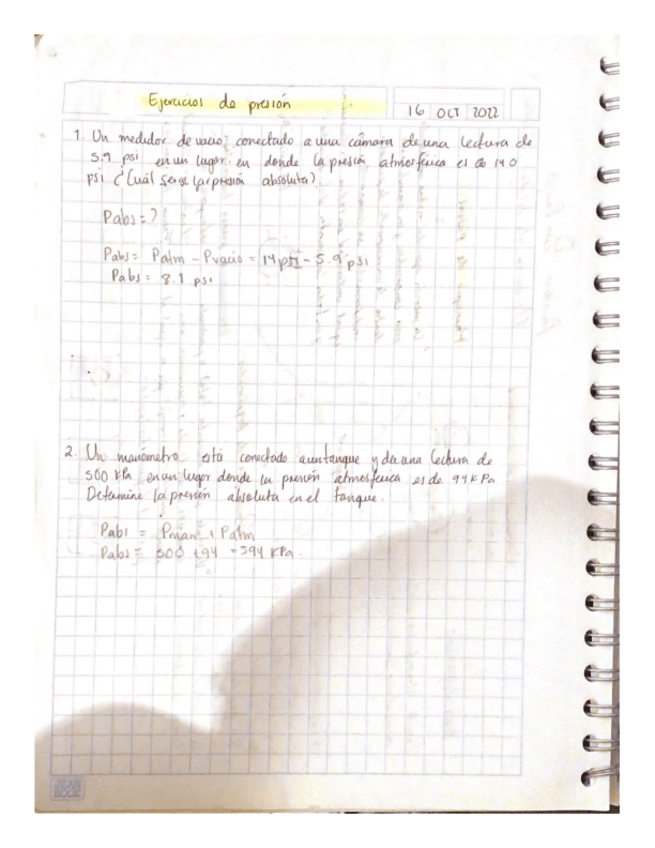 Ejercicios de presión
16 OCT 2022
1. Un medidor de vacio; conectado a una cámara de una lectura de
5.9 psi en un lugar en donde la presión atmosferica es de 14.0
psi ¿Cuál serge la presión absoluta?
Pabs = ?
Pabs = Patm - Pvacio = 14 psi - 5.9 psi
Pabs = 8.1 psi
2. Un manómetro está conectado a un tanque y da una lectura de
500 kPa en un lugar donde la presión atmosferica es de 94 kPa
Determine la presión absoluta en el tanque.
Pabs = Pman + Patm
Pabs = 500 + 94 = 594 KPa.
JEAN
BOOK